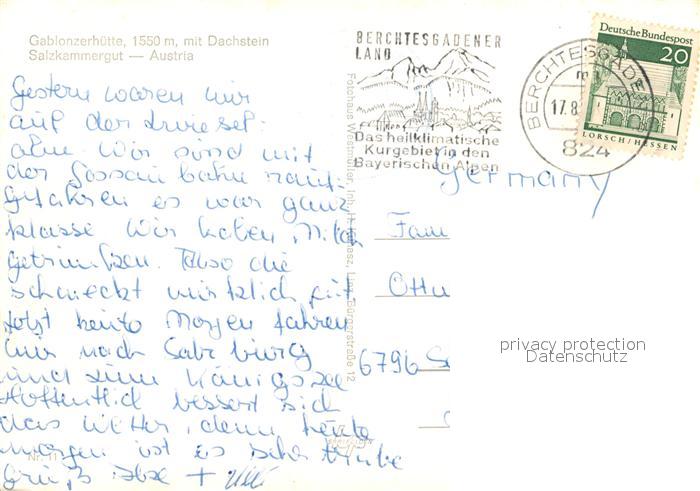 Gablonzerhütte, 1550 m, mit Dachstein
Salzkammergut — Austria
Gestern waren wir
auf der Zwiesel-
alm. Wir sind mit
der Gosaubahn rauf-
gefahren es war ganz
klasse Wir haben Milch
getrunken. Also die
schmeckt wirklich gut
Jetzt heute Morgen fahren
wir nach Salzburg
und zum Königssee
Hoffentlich bessert sich
das Wetter, denn heute
morgen ist es sehr trübe
Gruß Ilse +
Nr. 11
Fotohaus Linz, Bürgerstraße 12
BERCHTESGADENER
LAND
Das heilklimatische
Kurgebiet in den
Bayerischen Alpen
BERCHTESGADE
17.8
824
Deutsche Bundespost
20
LORSCH/HESSEN
Germany
Fam
Ottw
6796 Sc
privacy protection
Datenschutz